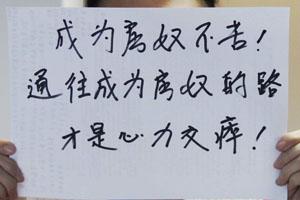 成为房奴不苦!
通往成为房奴的路
才是心力交瘁!